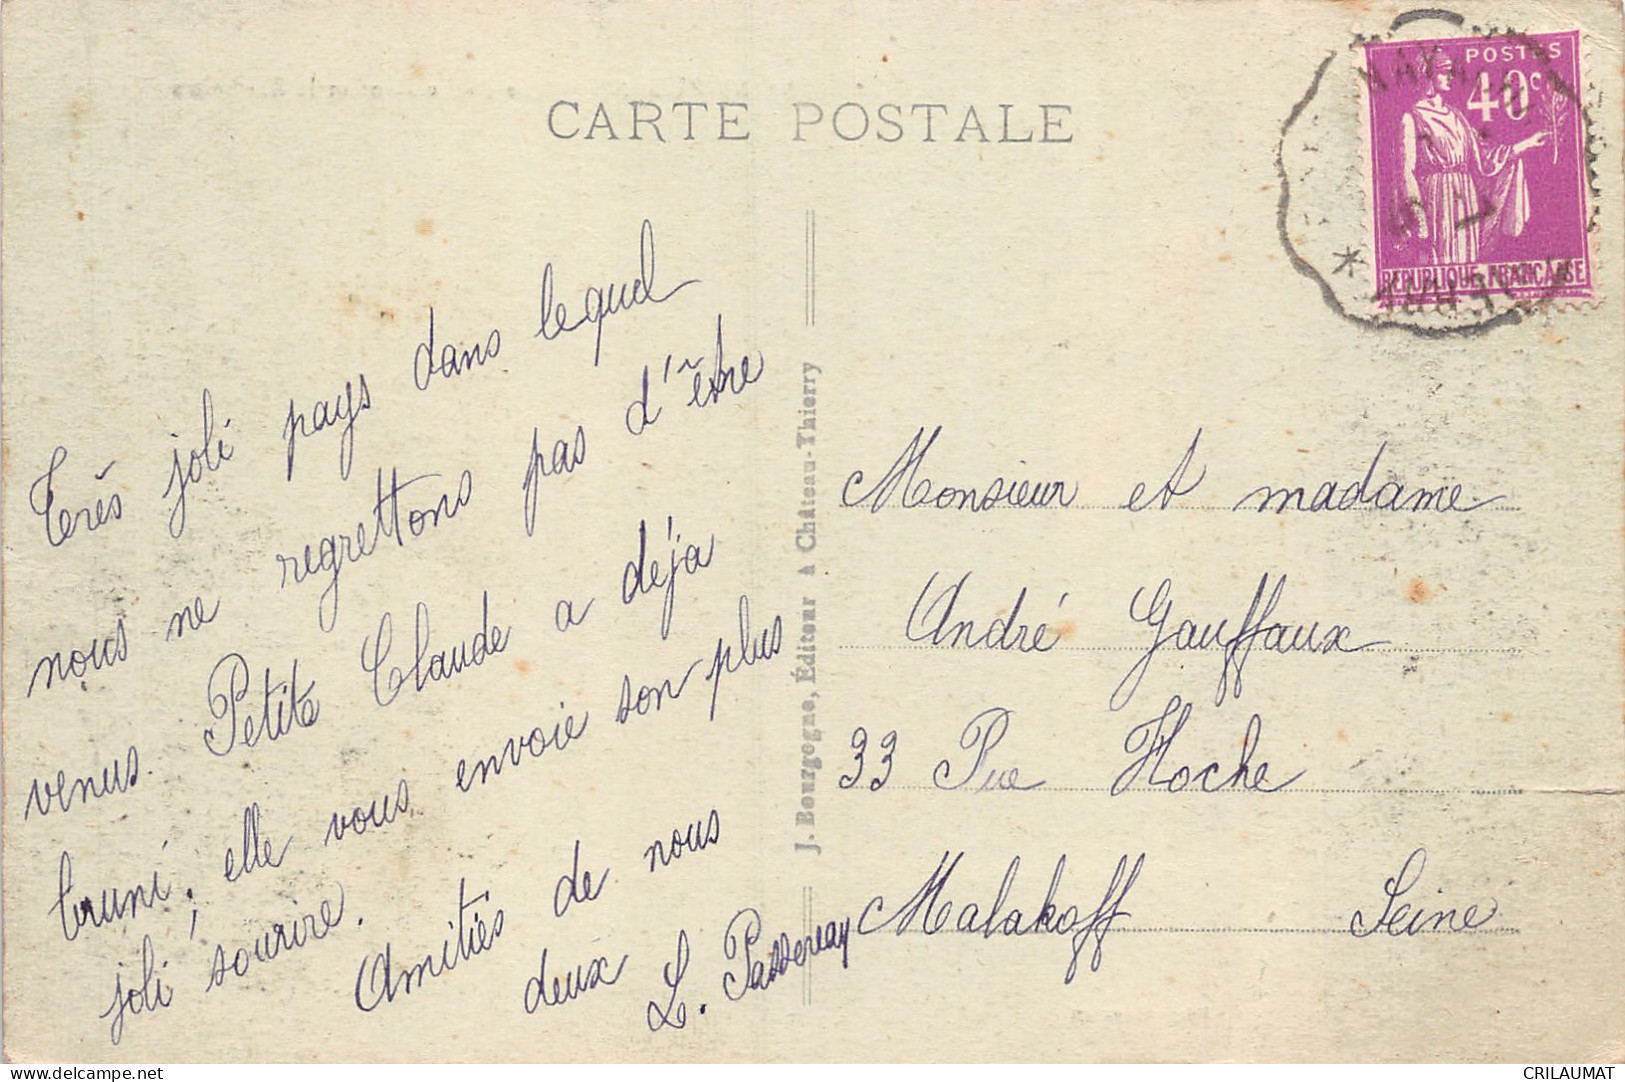 CARTE POSTALE
POSTES
40c
REPUBLIQUE FRANCAISE
Très joli pays dans lequel
nous ne regrettons pas d'être
venus. Petite Claude a déja
bruni; elle vous envoie son plus
joli sourire.
Amitiés de nous
deux
L. Passereay
J. Bourgogne, Éditeur à Château-Thierry
Monsieur et madame
André Gauffaux
33 Rue Hoche
Malakoff Seine
delcampe.net
CRILAUMAT